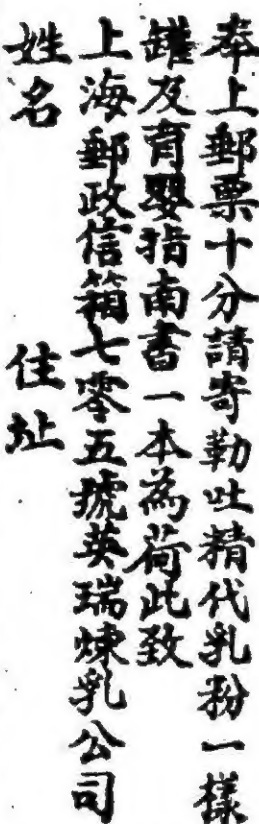 奉上郵票十分請寄勒吐精代乳粉一樣
罐及育嬰指南書一本為荷此致
上海郵政信箱七零五號英瑞煉乳公司
姓名 住址